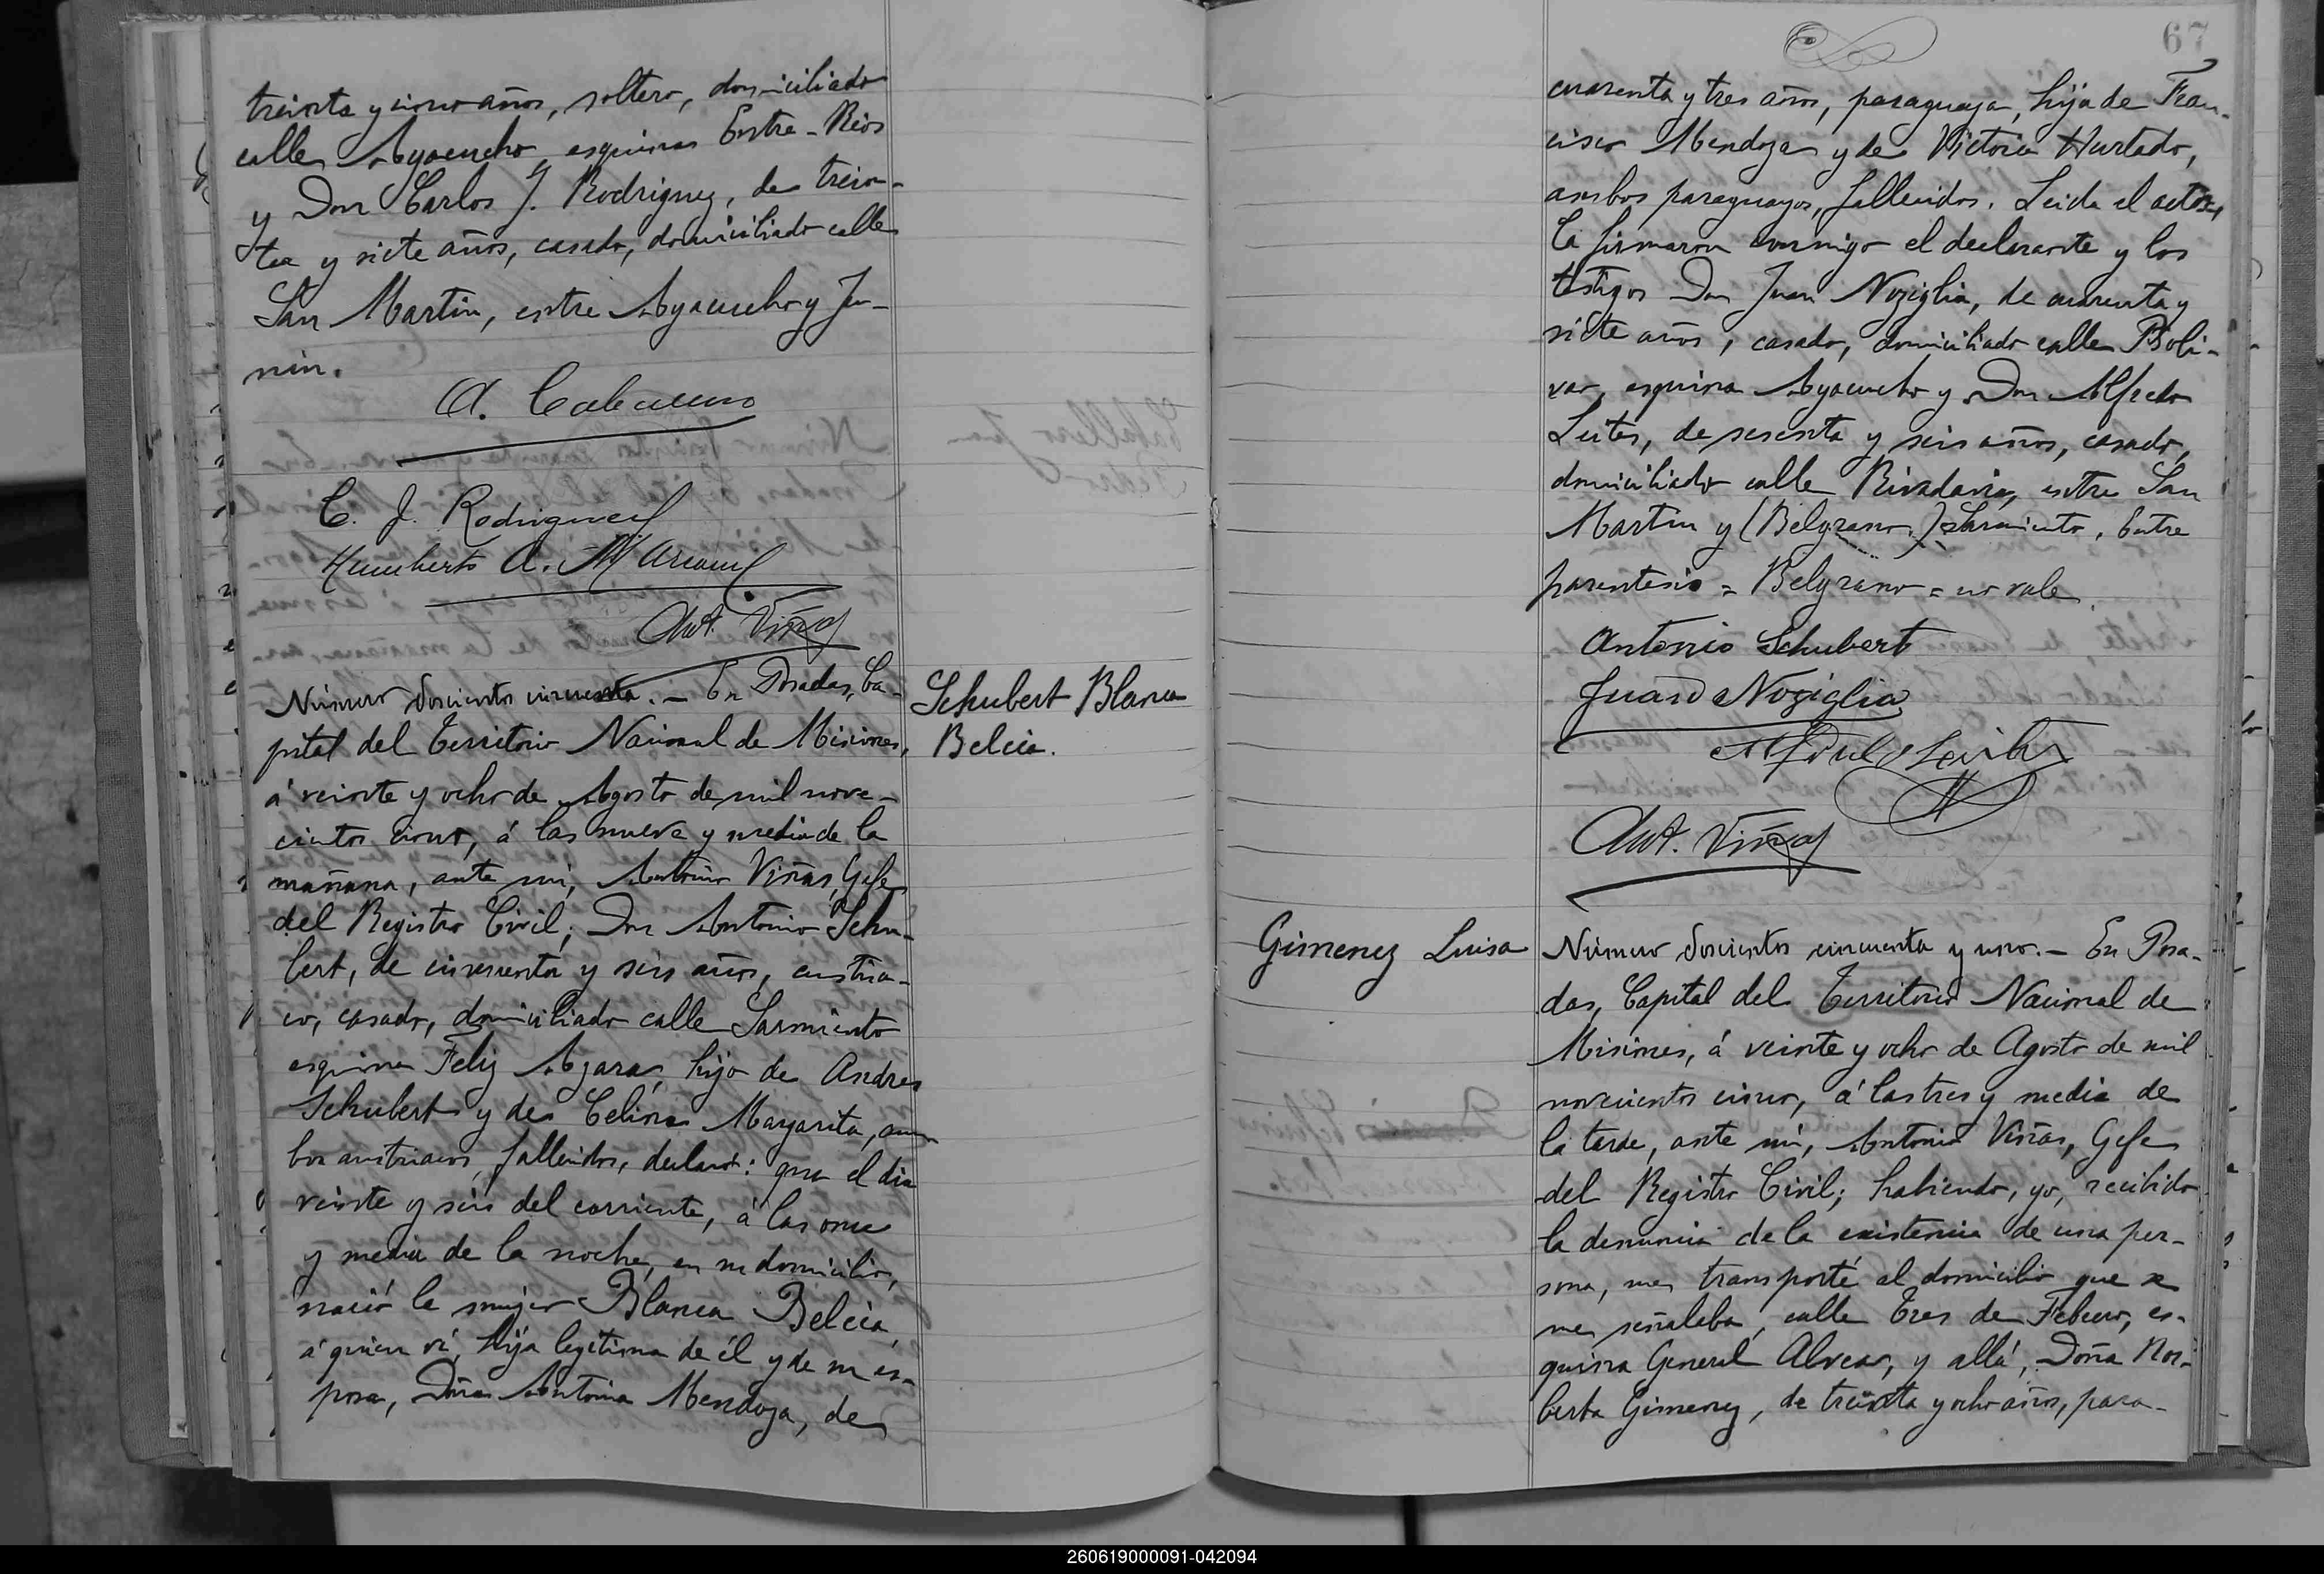 treinta y cinco años, soltero, domiciliado
calle Ayacucho esquina Entre-Rios
y Don Carlos J. Rodriguez, de trein-
ta y siete años, casado, domiciliado calle
San Martin, entre Ayacucho y Ju-
nin.
C. J. Rodriguez
Humberto A.
Ant. Viñas
Número doscientos cincuenta. - En Posadas, Ca-
pital del Territorio Nacional de Misiones,
á veinte y ocho de Agosto de mil nove-
cientos cinco, á las nueve y media de la
mañana, ante mi, Antonio Viñas, Gefe
del Registro Civil; Don Antonio Schu-
bert, de cincuenta y seis años, austria-
co, casado, domiciliado calle Sarmiento
esquina Feliz Azara, hijo de Andres
Schubert y de Celina Margarita, am-
bos austriacos, fallecidos, declaró: que el dia
veinte y seis del corriente, á las once
y media de la noche, en su domicilio,
nació la mujer Blanca Belcia
á quien ví, hija legitima de él y de su es-
posa, Doña Antonia Mendoza, de
Schubert Blanca
Belcia.
67
cuarenta y tres años, paraguaya, hija de Fran-
cisco Mendoza y de Victoria Hurtado,
ambos paraguayos, fallecidos. Leida el acta,
la firmaron conmigo el declarante y los
testigos Don Juan Noziglia, de cuarenta y
siete años, casado, domiciliado calle Boli-
var, esquina Ayacucho y Don Alfredo
Leites, de sesenta y seis años, casado,
domiciliado calle Rivadavia, entre San
Martin y (Belgrano) Sarmiento. Entre
parentesis = Belgrano = no vale.
Antonio Schubert
Juan Noziglia
Ant. Viñas
Gimenez Luisa
Número doscientos cincuenta y uno. - En Posa-
das, Capital del Territorio Nacional de
Misiones, á veinte y ocho de Agosto de mil
novecientos cinco, á las tres y media de
la tarde, ante mi, Antonio Viñas, Gefe
del Registro Civil; habiendo, yo, recibido
la denuncia de la existencia de una per-
sona, me transporté al domicilio que se
me señalaba, calle Tres de Febrero, es-
quina General Alvear, y allá, Doña Nor-
berta Gimenez, de treinta y ocho años, para-
260619000091-042094